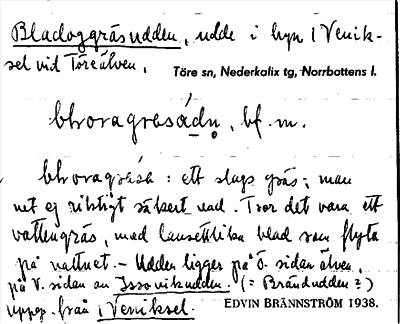 Bladoggräsudden, udde i byn i Venik-
sel vid Töreälven.
Töre sn, Nederkalix tg, Norrbottens l.
bf. m.
: ett slags gräs; man
vet ej riktigt säkert vad. Tror det vara ett
vattengräs, med lansettlika blad som flyta
på vattnet. – Udden ligger på ö. sidan älven,
på v. sidan om Issovikudden. (= Brändudden?)
uppg. från i Veniksel.
EDVIN BRÄNNSTRÖM 1938.